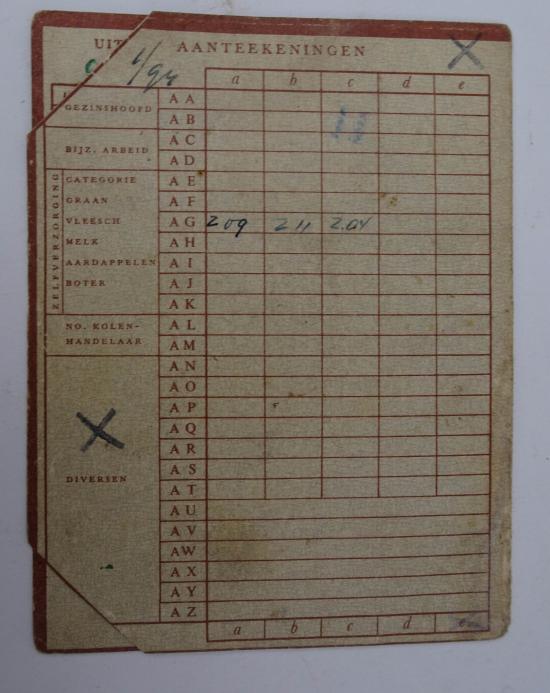 UIT AANTEEKENINGEN X
a b c d e
GEZINSHOOFD A A
A B
BIJZ. ARBEID A C
A D
ZELFVERZORGING
CATEGORIE A E
GRAAN A F
VLEESCH A G 209 211 204
MELK A H
AARDAPPELEN A I
BOTER A J
A K
NO. KOLEN- A L
HANDELAAR A M
A N
A O
A P
X A Q
A R
DIVERSEN A S
A T
A U
A V
A W
A X
A Y
A Z
a b c d e